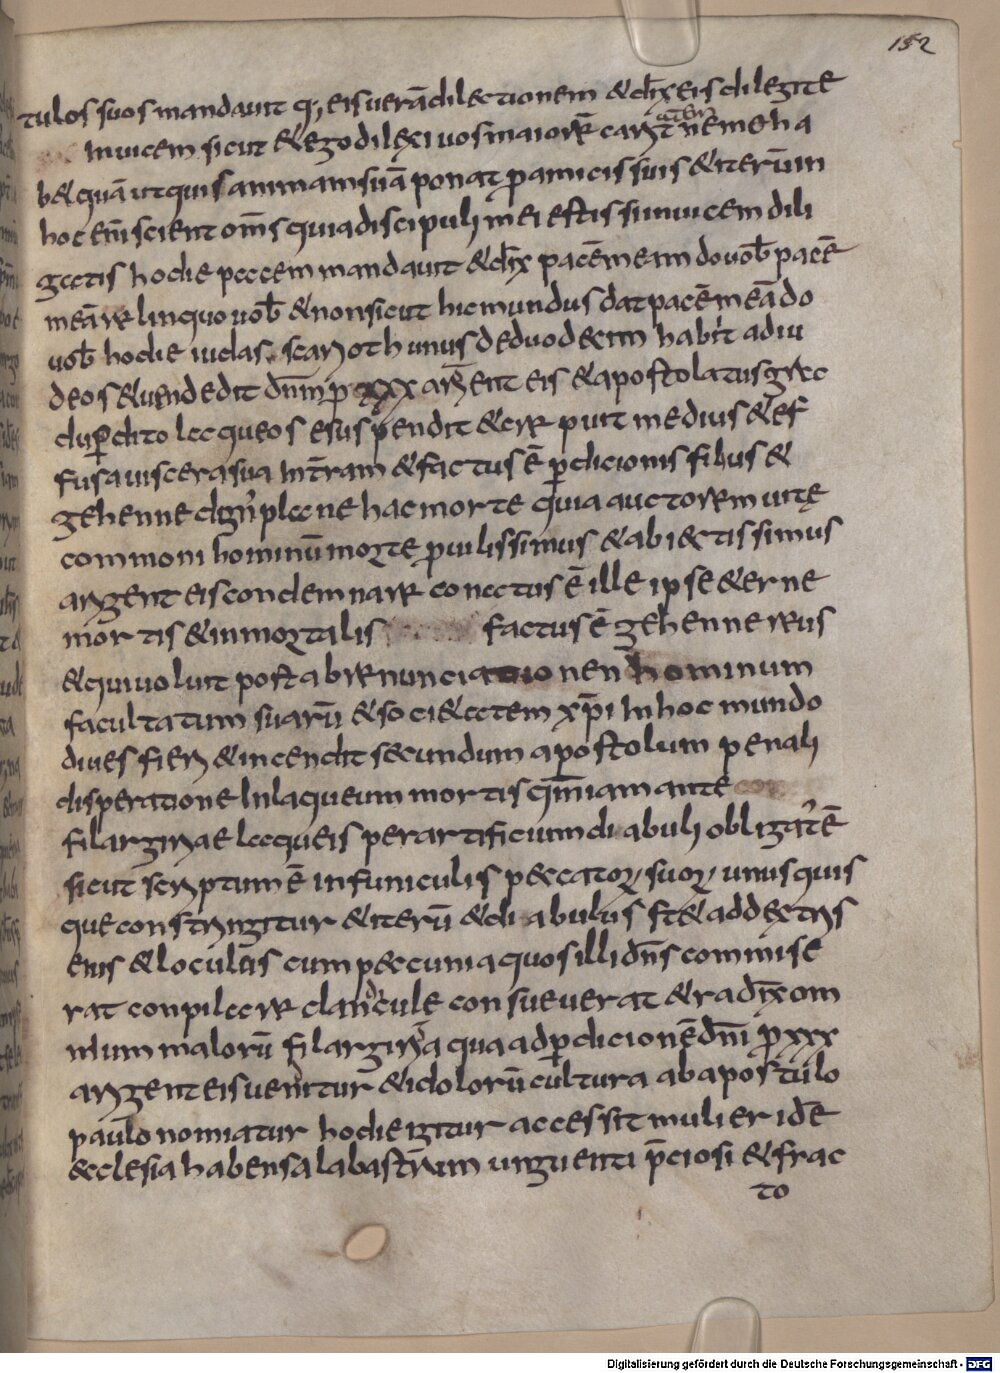 152
tulos suos mandauit q; eis uerā dilectionem & dix̄ eis diligite
Inuicem sicut & ego dilexi uos maiorē carit̄ utem nēmo ha
b& quā ut quis animam suā ponat p̄ amicis suis & iterūm
hoc eni͞ scient om̄s quia discipuli mei estis si inuicem dili
gatis hodie pacem mandauit & dix̄ pacēm eam do uob̄ pacē
meā relinquo uob̄ & non sicut hic mundus dat pacē meā do
uob̄ hodie iudas scarioth unus de duodecim habiit ad iu
deos & uendedit dn̄m p̄ xxx arḡent eis & apostolatus gra
du p̄dito laqueo se suspendit & crepuit medius & ef
fusa uiscera sua In t̄ram & factus ē p̄dicionis filius &
gehenne dign̄ plane hac morte quia auctorem uitę
commoni hominū morte p̄ uilissimus & abiectissimus
argenteis condemnare conatus ē ille ipse &erne
mortis & inmortalis factus ē gehenne reus
& qui uoluit post abrenunciationen hominum
facultatum suarū & soci&atem xp̄i In hoc mundo
diues fieri & incendit secundum apostolum penali
disperatione In laqueum mortis qm̄ iam ante
filargiriae laqueis per artificium diabuli obligat̄ ē
sicut scriptum ē in funiculis peccatoꝝ suoꝝ unusquis
que constringitur & iterū & diabulus st& ad dextris
eius & loculos cum peccunia quos illi dn̄s commise
rat conpilare clandcule consueuerat & radix̄ om
nium malorū filargiria qua ad p̄dicionē dn̄i p̄ xxx
argenteis uenitur & idolorū cultura ab apostulo
paulo nomiatur hodie igitur accessit mulier id ē
ecclesia habens alabastrum unguenti p̄ciosi & frac
to
Digitalisierung gefördert durch die Deutsche Forschungsgemeinschaft - DFG